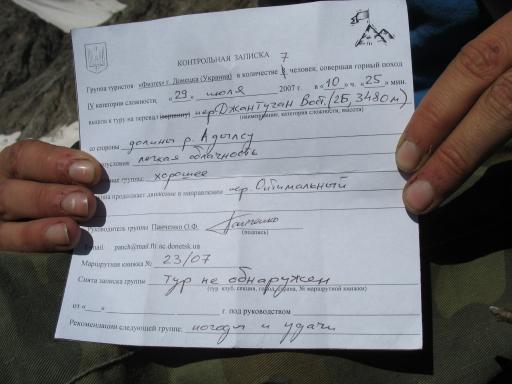 КОНТРОЛЬНАЯ ЗАПИСКА
Группа туристов «Физтех» г. Донецка (Украина) в количестве 7 человек, совершая горный поход
IV категории сложности, «29» июля 2007 г. в «10» ч. «25» мин.
вышла к туру на перевал (вершину) пер. Джантуган Вост. (2Б, 3480 м)
(наименование, категория сложности, высота)
со стороны долины р. Адылсу
легкая облачность
группы: хорошее
продолжает движение в направлении пер. Оптимальный
Руководитель группы Панченко О.Ф. Панченко
(подпись)
E-mail: panch@mail.fti.ac.donetsk.ua
Маршрутная книжка № 23/07
Снята записка группы тур не обнаружен
(тур. клуб, секция, город, страна, № маршрутной книжки)
от «___» г. под руководством
Рекомендации следующей группе: погоды и удачи